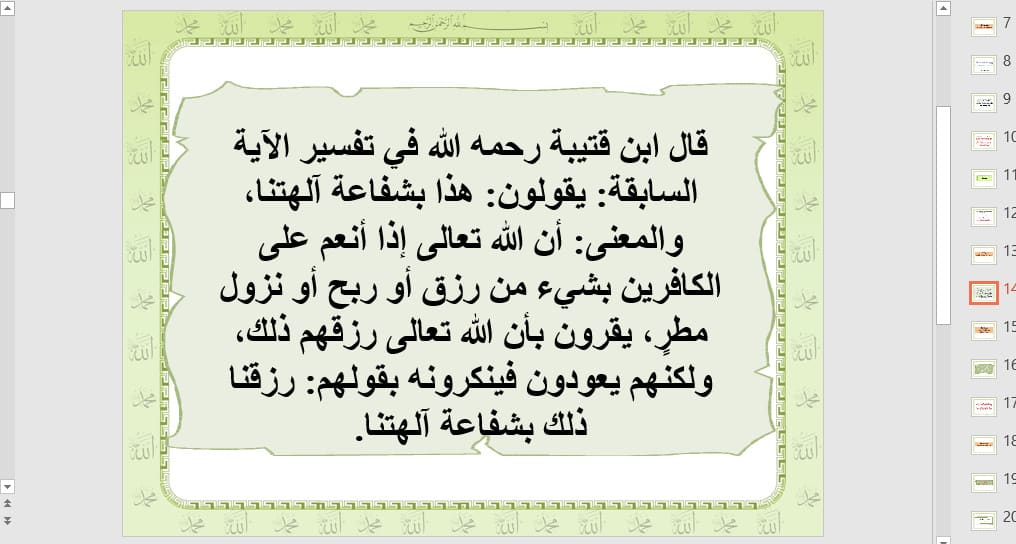 بسم الله الرحمن الرحيم
قال ابن قتيبة رحمه الله في تفسير الآية
السابقة: يقولون: هذا بشفاعة آلهتنا،
والمعنى: أن الله تعالى إذا أنعم على
الكافرين بشيء من رزق أو ربح أو نزول
مطرٍ، يقرون بأن الله تعالى رزقهم ذلك،
ولكنهم يعودون فينكرونه بقولهم: رزقنا
ذلك بشفاعة آلهتنا.
7
8
9
10
11
12
13
14
15
16
17
18
19
20